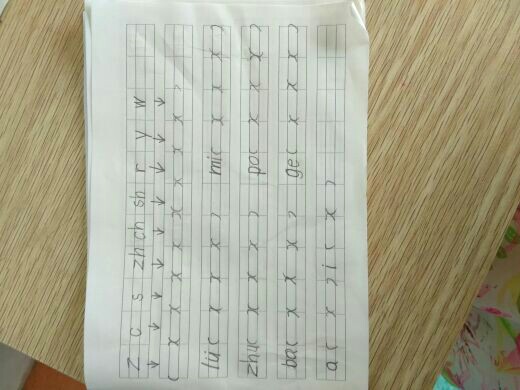 z c s zh ch sh r y w
↓ ↓ ↓ ↓ ↓ ↓ ↓ ↓ ↓
( x x x x x x x x x )
lü( x x x ) mi( x x x )
zhu( x x x ) po( x x x )
ba( x x x ) ge( x x x )
a( x ) i( x )